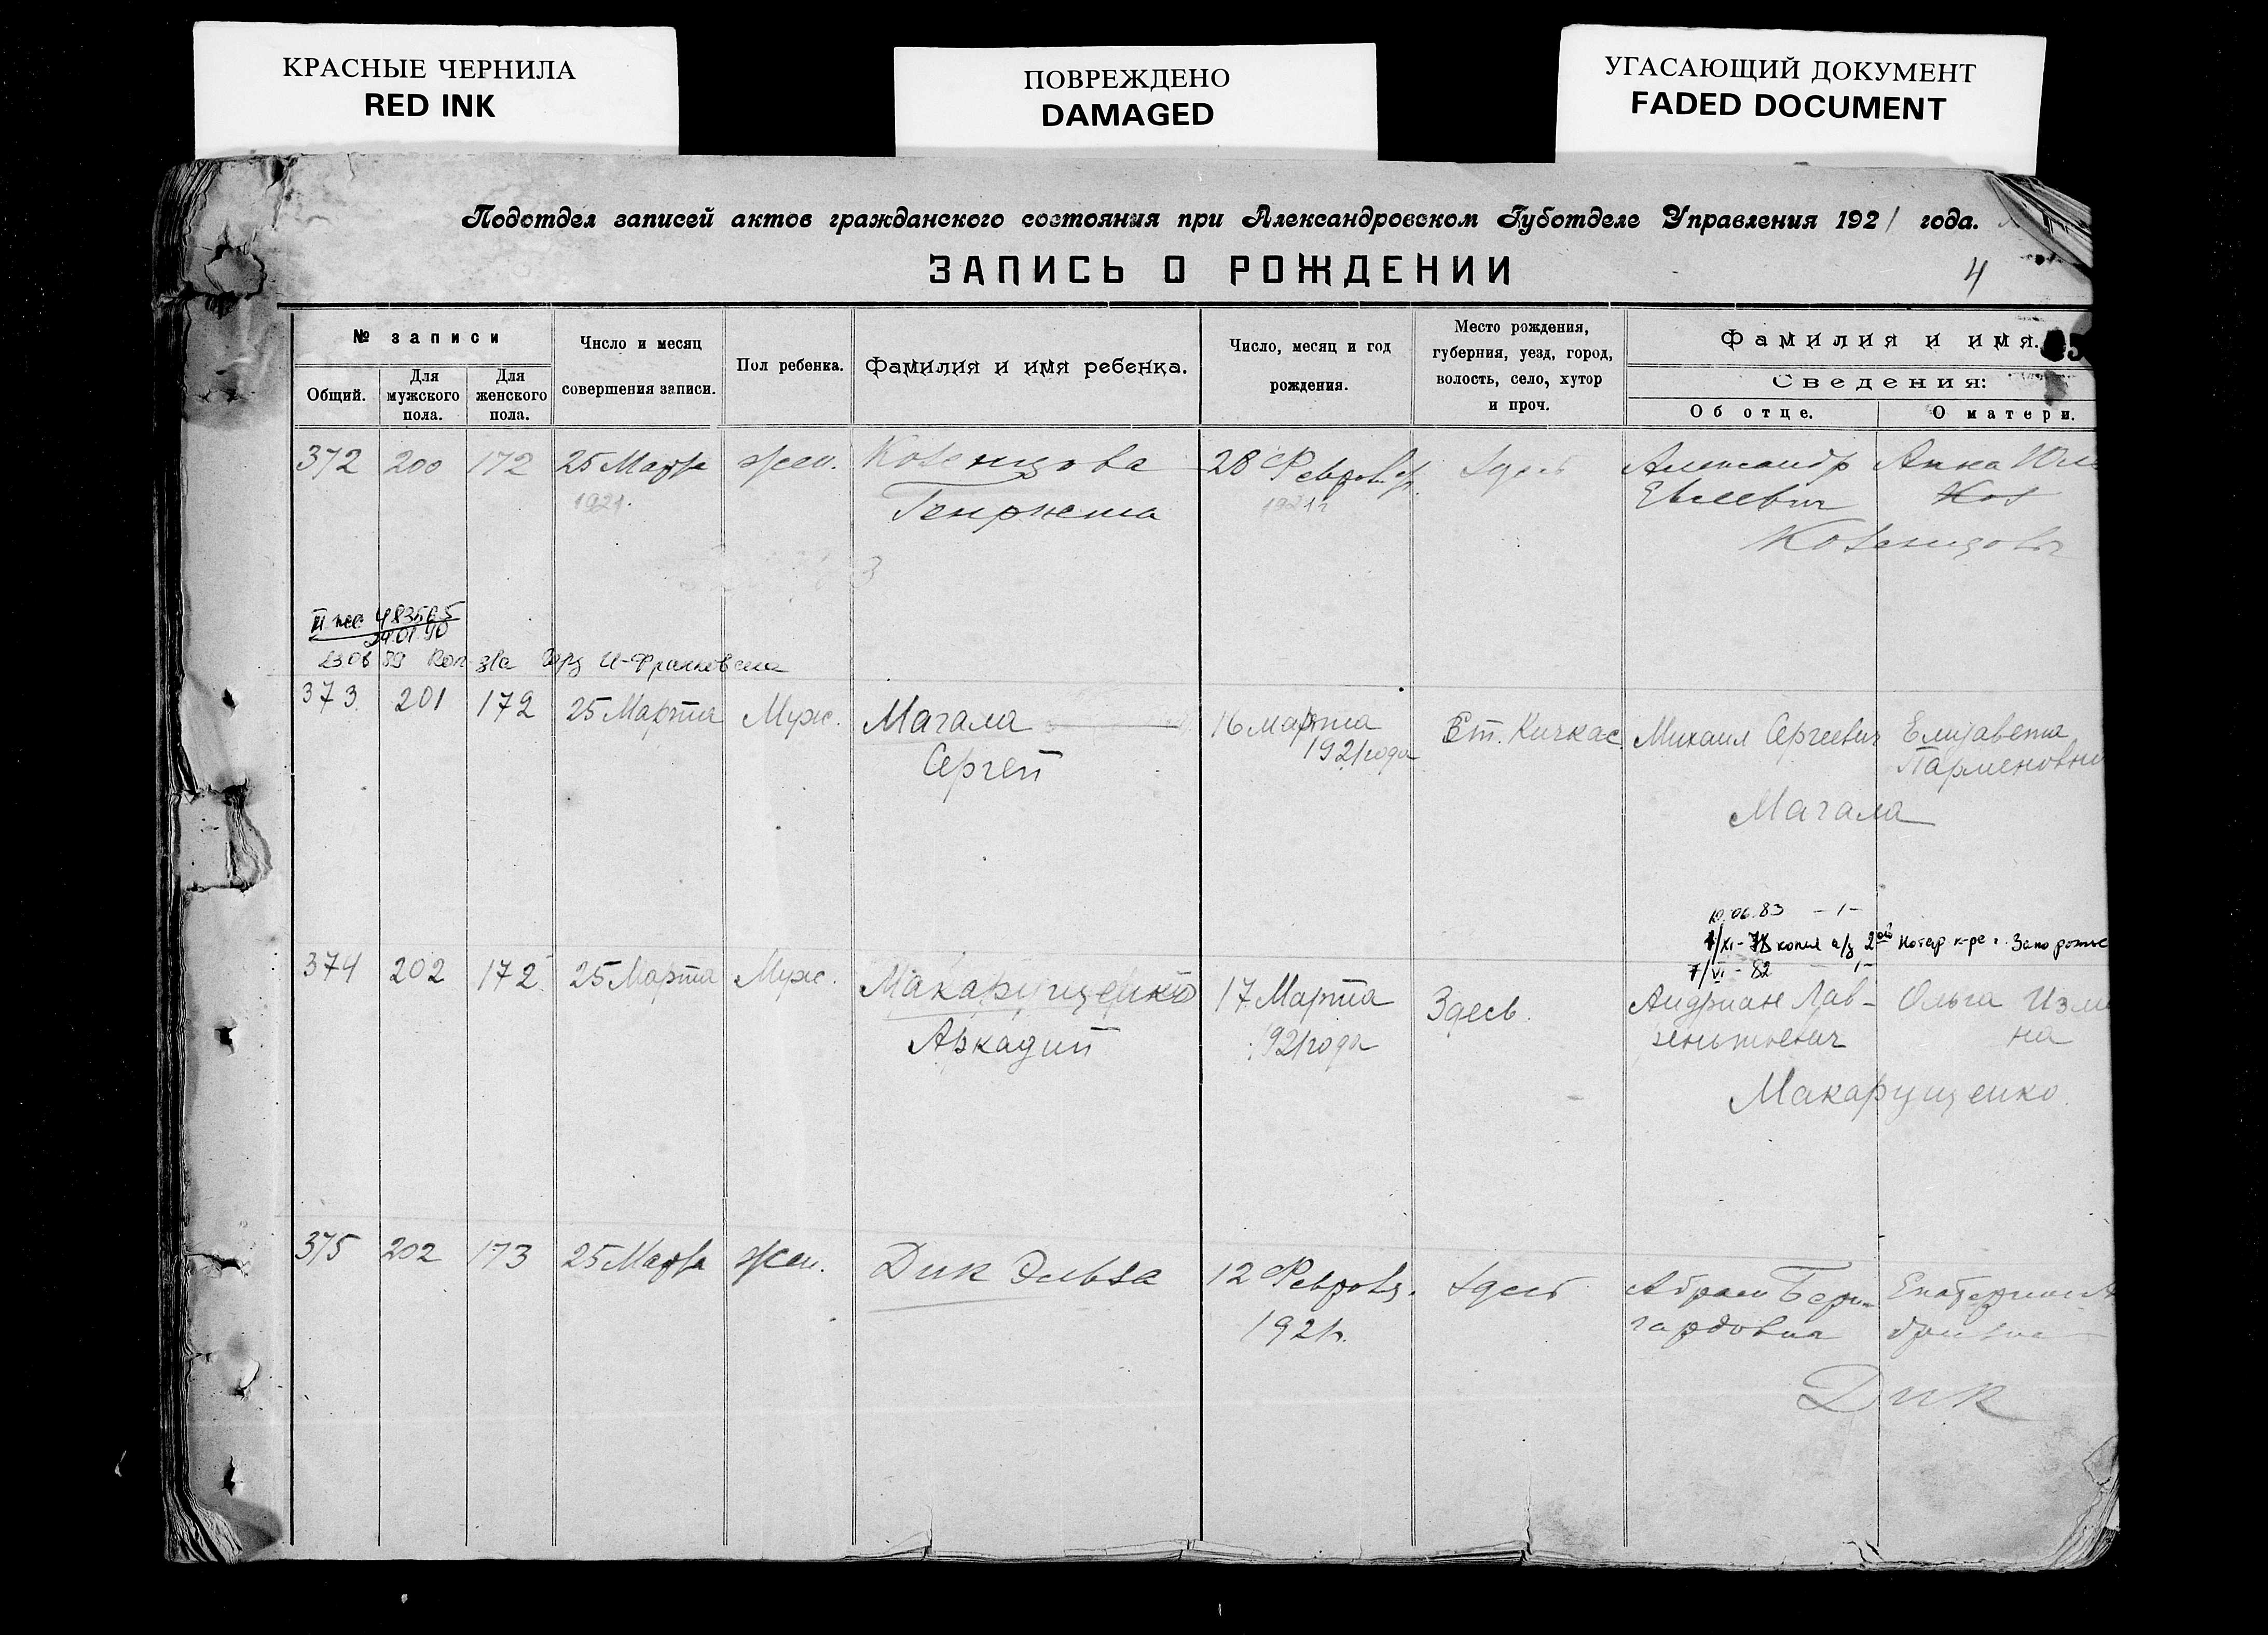 КРАСНЫЕ ЧЕРНИЛА
RED INK
ПОВРЕЖДЕНО
DAMAGED
УГАСАЮЩИЙ ДОКУМЕНТ
FADED DOCUMENT
Подотдел записей актов гражданского состояния при Александровском Губотделе Управления 1921 года.
ЗАПИСЬ О РОЖДЕНИИ
4
№ записи
Общий.
Для мужского пола.
Для женского пола.
Число и месяц
совершения записи.
Пол ребенка.
Фамилия и имя ребенка.
Число, месяц и год
рождения.
Место рождения,
губерния, уезд, город,
волость, село, хутор
и проч.
Фамилия и имя.
Сведения:
Об отце.
О матери.
372 200 172 25 Марта жен. 28 Феврал. Здесь Александр Анна
1921. Генриета 1921 г Евсеевич
483565
24.01.90
373 201 172 25 Марта Муж. Магала 16 Марта Ст. Кичкас Михаил Сергеевич Елизавета
Сергей 1921 года Парменовна
Магала
10.06.83 -1-
копия а/з 2 Нотар к-ре г. Запорожье
7/VI-82
374 202 172 25 Марта Муж. Макарущенко 17 Марта Здесь. Андриан Лав-
Ольга
Аркадий 1921 года рентиевич на
Макарущенко
375 202 173 25 Марта жен. Дик Эльза 12 Феврал. Здесь Абрам Берн-
Екатерина
1921 г. гардович
Дик